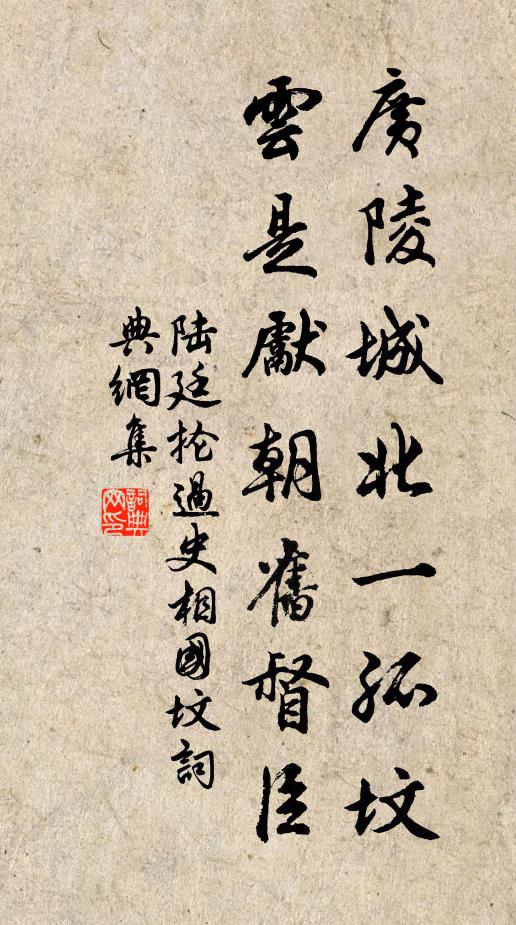 廣陵城北一孤坟
雲是獻朝舊督臣
陆廷抡過史相國坟詞
典網集
詞典网印